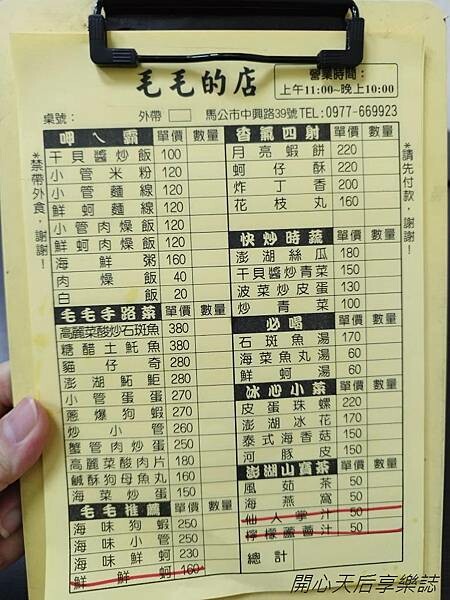 毛毛的店
營業時間：
上午11:00~晚上10:00
桌號： 外帶 馬公市中興路39號TEL:0977-669923
*禁帶外食，謝謝！
呷ㄟ霸 單價 數量
干貝醬炒飯 100
小管米粉 120
小管麵線 120
鮮蚵麵線 120
小管肉燥飯 120
鮮蚵肉燥飯 120
海鮮粥 160
肉燥飯 40
白飯 20
毛毛手路菜 單價 數量
高麗菜酸炒石斑魚 380
糖醋土魠魚 380
貓仔奇 280
澎湖鮀鮔 280
小管蛋蛋 270
蔥爆狗蝦 270
炒小管 260
蟹管肉炒蛋 250
高麗菜酸肉片 180
鹹酥狗母魚丸 160
海菜炒蛋 150
毛毛推薦 單價 數量
海味狗蝦 250
海味小管 250
海味鮮蚵 230
鮮鮮蚵 160
香氣四射 單價 數量
月亮蝦餅 220
蚵仔酥 220
炸丁香 200
花枝丸 160
快炒時蔬 單價 數量
澎湖絲瓜 180
干貝醬炒青菜 150
波菜炒皮蛋 130
炒青菜 100
必喝 單價 數量
石斑魚湯 170
海菜魚丸湯 60
鮮蚵湯 60
冰心小菜 單價 數量
皮蛋珠螺 220
澎湖冰花 170
泰式海香菇 150
河豚皮 150
澎湖山寶茶 單價 數量
風茹茶 50
海燕窩 50
仙人掌汁 50
檸檬蘆薈汁 50
總計
*請先付款，謝謝！
開心天后享樂誌